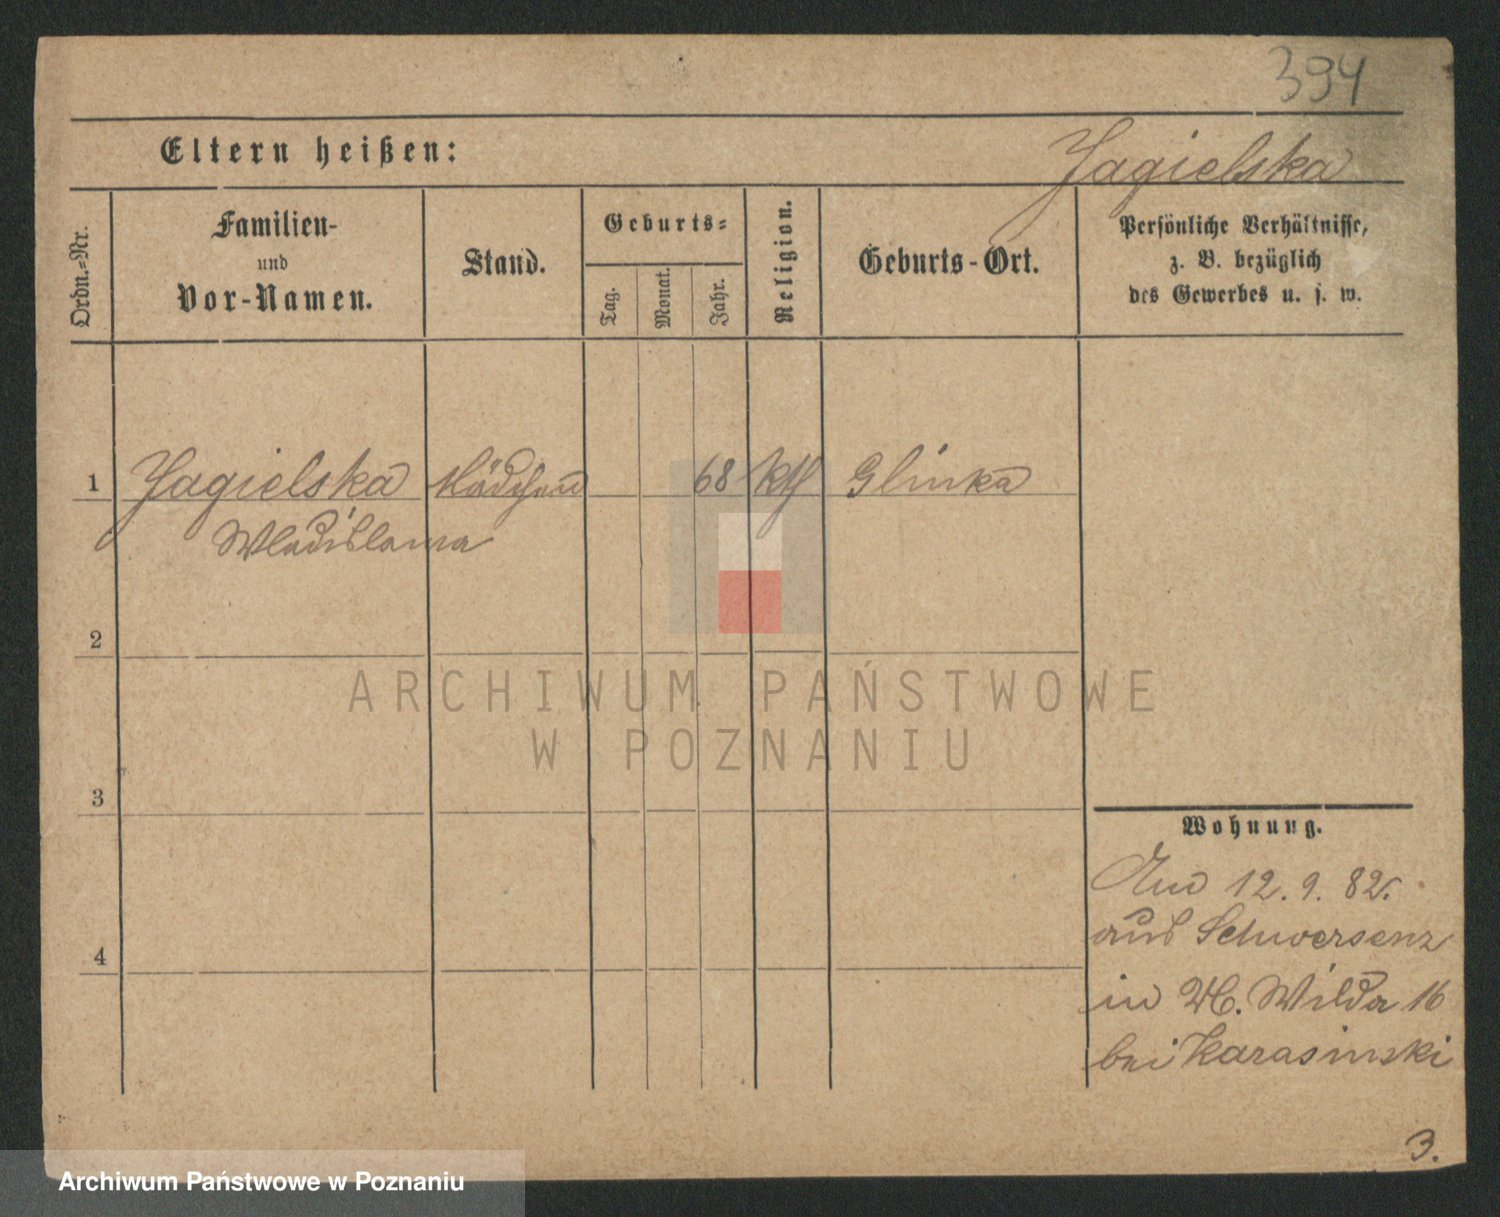 394
Eltern heißen:
Jagielska
Ordn.-Nr.
Familien-
und
Vor-Namen.
Stand.
Geburts-
Tag.
Monat.
Jahr.
Religion.
Geburts-Ort.
Persönliche Verhältnisse,
z. B. bezüglich
des Gewerbes u. s. w.
1 Jagielska Mädchen 68 kth Glinka
Wladislawa
2
3
4
Wohnung.
12. 9. 82.
aus Schwersenz
in Wilda 16
bei Karasinski
3.
ARCHIWUM PAŃSTWOWE
W POZNANIU
Archiwum Państwowe w Poznaniu